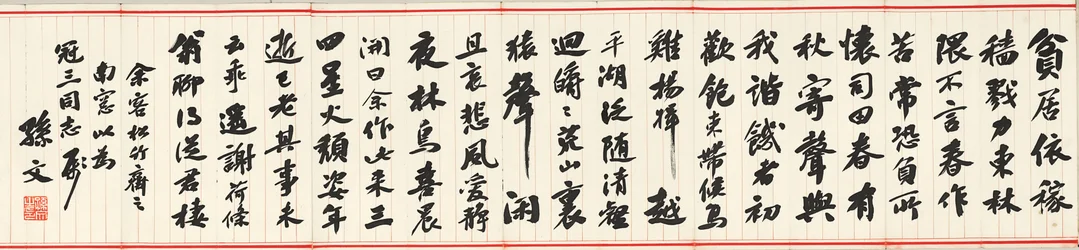 貧居依稼
穡戮力東林
隈不言春作
苦常恐負所
懷司田眷有
秋寄聲與
我諧饑者初
歡飽束帶候鳴
雞揚楫越
平湖泛隨清壑
迴皭〻荒山裏
猿聲閑
且哀悲風愛靜
夜林鳥喜晨
開曰余作此來三
四星火頹姿年
逝已老其事未
云乖遙謝荷蓧
翁聊得從君棲
余客松竹齋之
南窗以為
冠三同志
孫文